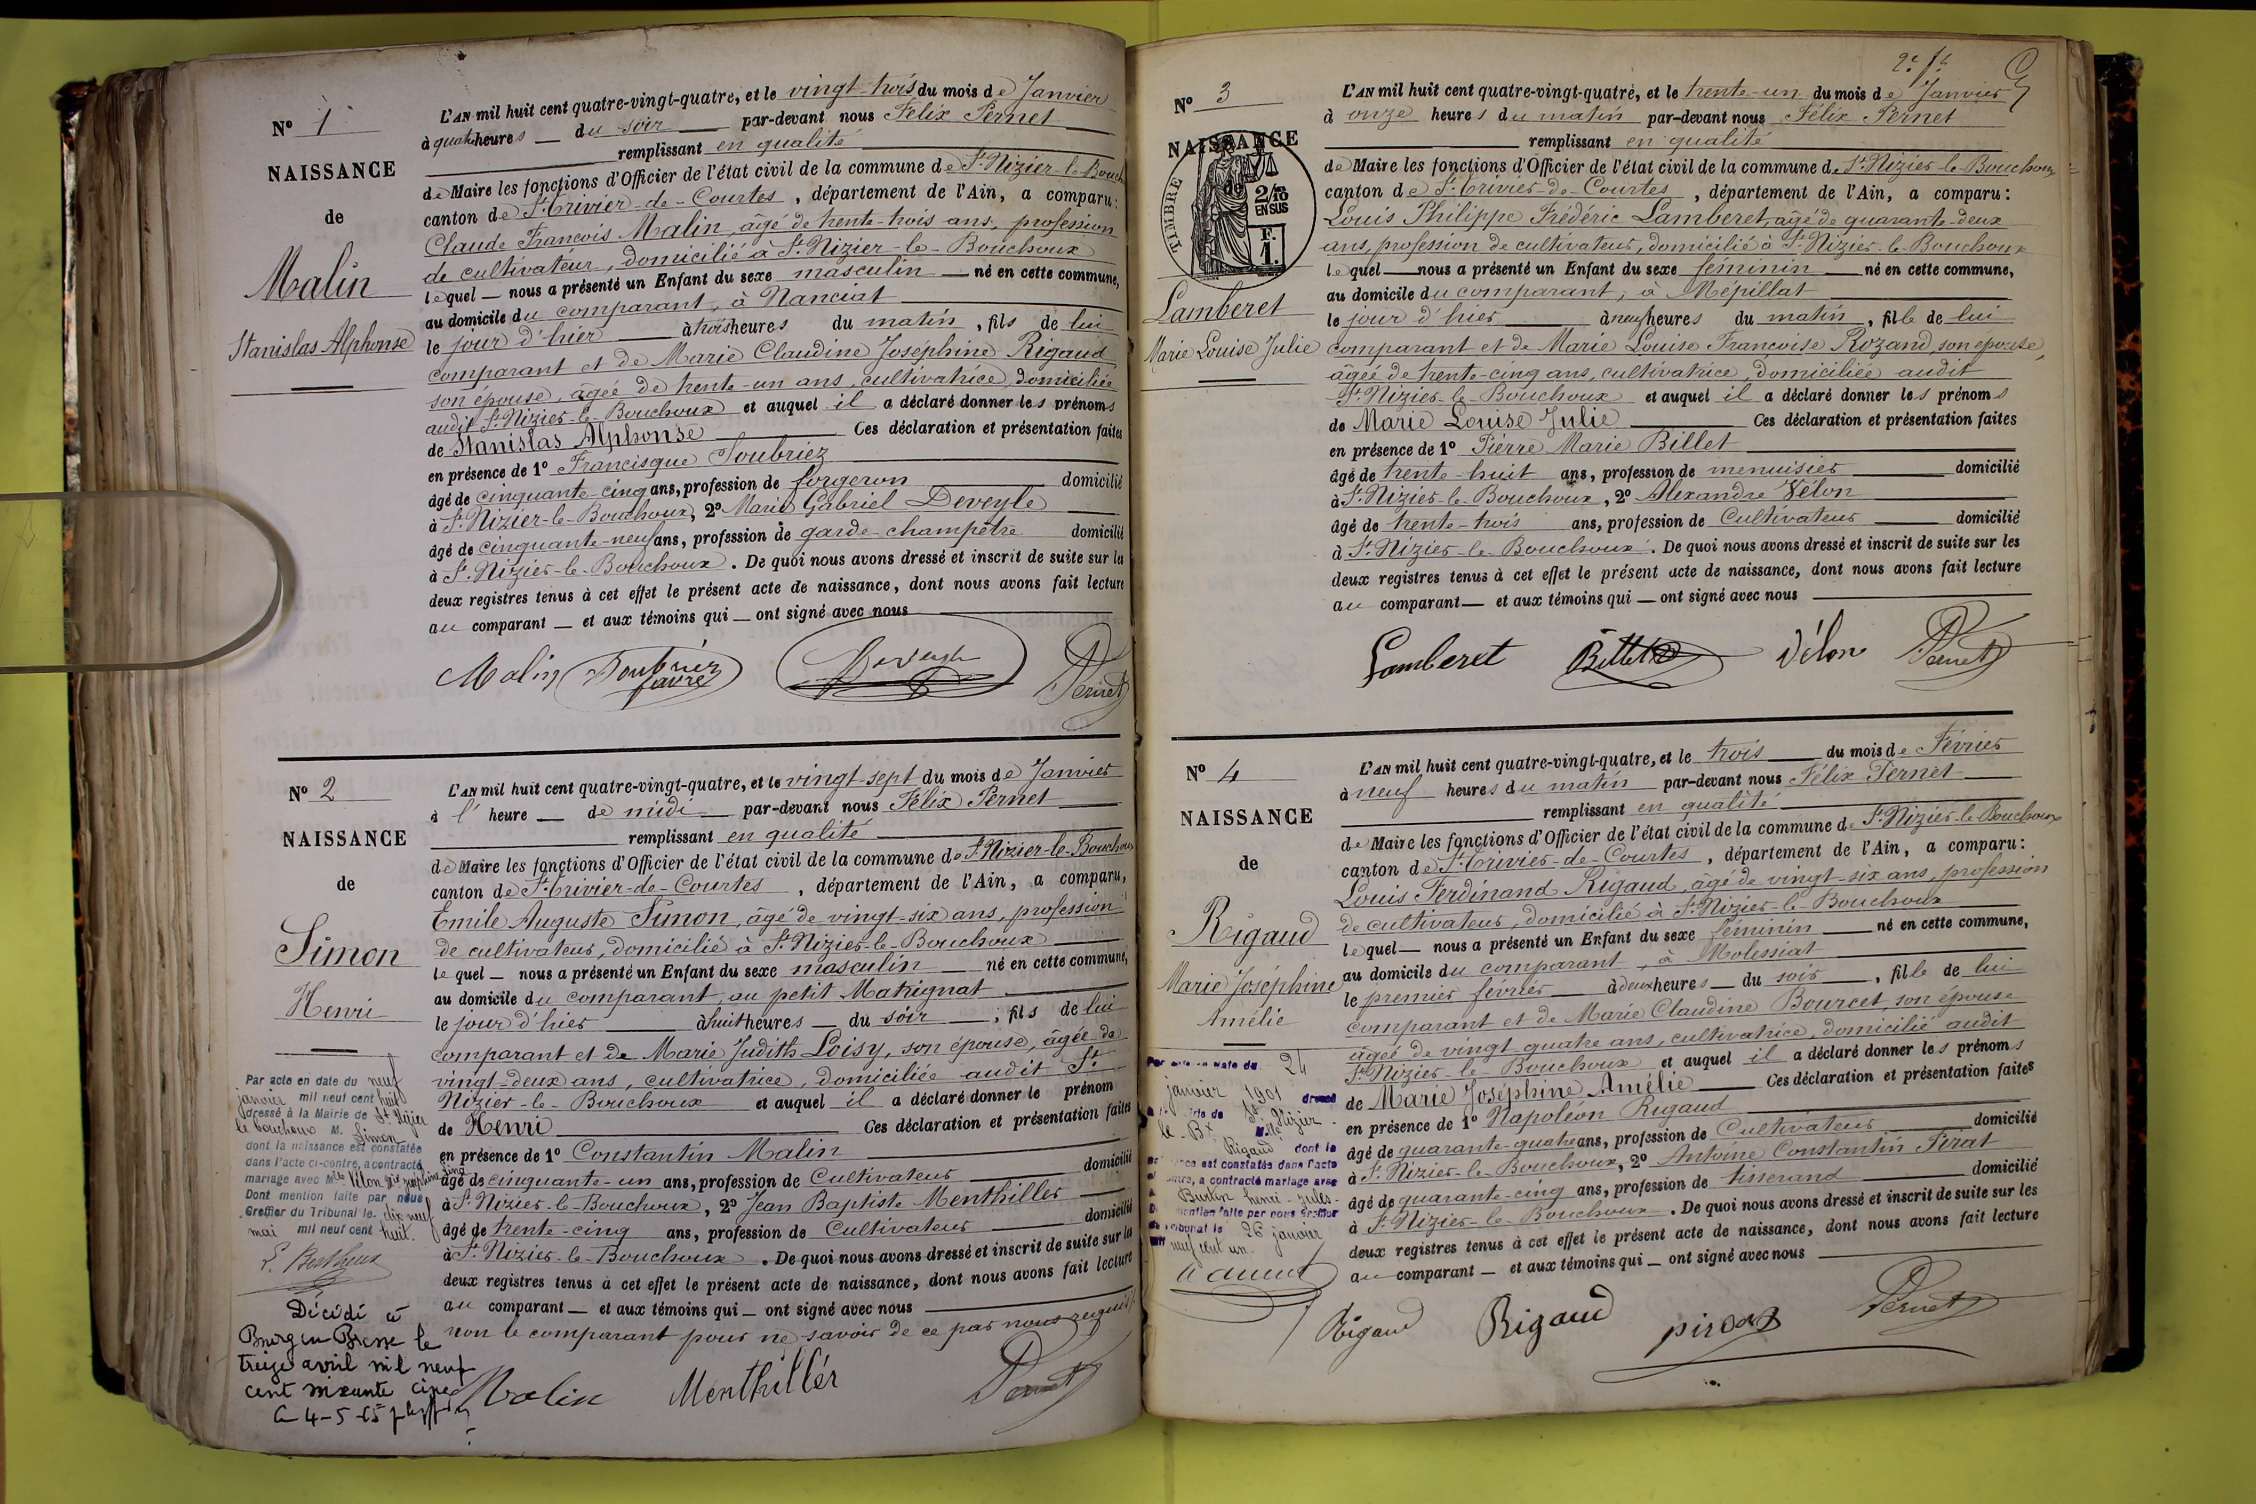 N° 1
NAISSANCE
de
Malin
Stanislas Alphonse
L'AN mil huit cent quatre-vingt-quatre, et le vingt-trois du mois de Janvier
à quatre heures du soir par-devant nous Félix Pernet
remplissant en qualité
de Maire les fonctions d'Officier de l'état civil de la commune de St Nizier-le-Bouch
canton de St Trivier-de-Courtes, département de l'Ain, a comparu:
Claude François Malin, âgé de trente-trois ans, profession
de cultivateur, domicilié à St Nizier-le-Bouchoux
lequel nous a présenté un Enfant du sexe masculin né en cette commune,
au domicile du comparant, à Nanciat
le jour d'hier à trois heures du matin, fils de lui
comparant et de Marie Claudine Joséphine Rigaud
son épouse, âgée de trente-un ans, cultivatrice, domiciliée
audit St Nizier-le-Bouchoux et auquel il a déclaré donner les prénoms
de Stanislas Alphonse Ces déclaration et présentation faites
en présence de 1° Francisque Soubriez
âgé de cinquante-cinq ans, profession de forgeron domicilié
à St Nizier-le-Bouchoux, 2° Marie Gabriel Deveyle
âgé de cinquante-neuf ans, profession de garde-champêtre domicilié
à St Nizier-le-Bouchoux. De quoi nous avons dressé et inscrit de suite sur les
deux registres tenus à cet effet le présent acte de naissance, dont nous avons fait lecture
au comparant et aux témoins qui ont signé avec nous
Malin Deveyle Pernet
N° 2
NAISSANCE
de
Simon
Henri
L'AN mil huit cent quatre-vingt-quatre, et le vingt-sept du mois de Janvier
à l'heure de midi par-devant nous Félix Pernet
remplissant en qualité
de Maire les fonctions d'Officier de l'état civil de la commune de St Nizier-le-Bouchoux
canton de St Trivier-de-Courtes, département de l'Ain, a comparu,
Emile Auguste Simon, âgé de vingt-six ans, profession
de cultivateur, domicilié à St Nizier-le-Bouchoux
lequel nous a présenté un Enfant du sexe masculin né en cette commune,
au domicile du comparant, au petit Matrignat
le jour d'hier à huit heures du soir, fils de lui
comparant et de Marie Judith Loisy, son épouse, âgée de
vingt-deux ans, cultivatrice, domiciliée audit St
Nizier-le-Bouchoux et auquel il a déclaré donner le prénom
de Henri Ces déclaration et présentation faites
en présence de 1° Constantin Malin
âgé de cinquante-un ans, profession de Cultivateur domicilié
à St Nizier-le-Bouchoux, 2° Jean Baptiste Menthiller
âgé de trente-cinq ans, profession de Cultivateur domicilié
à St Nizier-le-Bouchoux. De quoi nous avons dressé et inscrit de suite sur les
deux registres tenus à cet effet le présent acte de naissance, dont nous avons fait lecture
au comparant et aux témoins qui ont signé avec nous
non le comparant pour ne savoir de ce par nous requis
Malin Menthillér Pernet
Par acte en date du neuf
janvier mil neuf cent huit
dressé à la Mairie de St Nizier
le bouchoux M. Simon
dont la naissance est constatée
dans l'acte ci-contre, a contracté
mariage avec Mlle Vélon
Dont mention faite par nous
Greffier du Tribunal le dix neuf
mai mil neuf cent huit.
Décédé à
Bourg en Bresse le
treize avril mil neuf
cent soixante cinq
Le 4-5-65
2e ft
N° 3
NAISSANCE
de
TIMBRE
2/10
EN SUS
F.
1.
Lamberet
Marie Louise Julie
L'AN mil huit cent quatre-vingt-quatre, et le trente-un du mois de Janvier
à onze heures du matin par-devant nous Félix Pernet
remplissant en qualité
de Maire les fonctions d'Officier de l'état civil de la commune de St Nizier-le-Bouchoux
canton de St Trivier-de-Courtes, département de l'Ain, a comparu:
Louis Philippe Frédéric Lamberet âgé de quarante-deux
ans, profession de cultivateur, domicilié à St Nizier-le-Bouchoux
lequel nous a présenté un Enfant du sexe féminin né en cette commune,
au domicile du comparant, à Mépillat
le jour d'hier à neuf heures du matin, fille de lui
comparant et de Marie Louise Françoise Rozand, son épouse,
âgée de trente-cinq ans, cultivatrice, domiciliée audit
St Nizier-le-Bouchoux et auquel il a déclaré donner les prénoms
de Marie Louise Julie Ces déclaration et présentation faites
en présence de 1° Piérre Marie Billet
âgé de trente-huit ans, profession de menuisier domicilié
à St Nizier-le-Bouchoux, 2° Alexandre Vélon
âgé de trente-trois ans, profession de Cultivateur domicilié
à St Nizier-le-Bouchoux. De quoi nous avons dressé et inscrit de suite sur les
deux registres tenus à cet effet le présent acte de naissance, dont nous avons fait lecture
au comparant et aux témoins qui ont signé avec nous
Lamberet Billet Vélon Pernet
N° 4
NAISSANCE
de
Rigaud
Marie Joséphine
Amélie
L'AN mil huit cent quatre-vingt-quatre, et le trois du mois de Février
à neuf heures du matin par-devant nous Félix Pernet
remplissant en qualité
de Maire les fonctions d'Officier de l'état civil de la commune de St Nizier-le-Bouchoux
canton de St Trivier-de-Courtes, département de l'Ain, a comparu:
Louis Ferdinand Rigaud, âgé de vingt-six ans, profession
de cultivateur, domicilié à St Nizier-le-Bouchoux
lequel nous a présenté un Enfant du sexe féminin né en cette commune,
au domicile du comparant, à Molessiat
le premier février à deux heures du soir, fille de lui
comparant et de Marie Claudine Bourcet, son épouse
âgée de vingt quatre ans, cultivatrice, domicilié audit
St Nizier-le-Bouchoux et auquel il a déclaré donner les prénoms
de Marie Joséphine Amélie Ces déclaration et présentation faites
en présence de 1° Napoléon Rigaud
âgé de quarante-quatre ans, profession de Cultivateur domicilié
à St Nizier-le-Bouchoux, 2° Antoine Constantin Pirat
âgé de quarante-cinq ans, profession de tisserand domicilié
à St Nizier-le-Bouchoux. De quoi nous avons dressé et inscrit de suite sur les
deux registres tenus à cet effet le présent acte de naissance, dont nous avons fait lecture
au comparant et aux témoins qui ont signé avec nous
Rigaud Rigaud Pernet
Par acte en date du 24
janvier 1901 dressé
St Nizier
le Bx Mlle
Rigaud dont la
est constatée dans l'acte
a contracté mariage avec
henri-jules
mention faite par nous Greffier
Tribunal le 26 janvier
neuf cent un